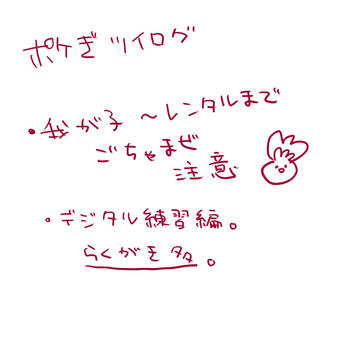 ポケぎツイログ
・我が子〜レンタルまで
ごちゃまぜ
注意
・デジタル練習編。
らくがき多。